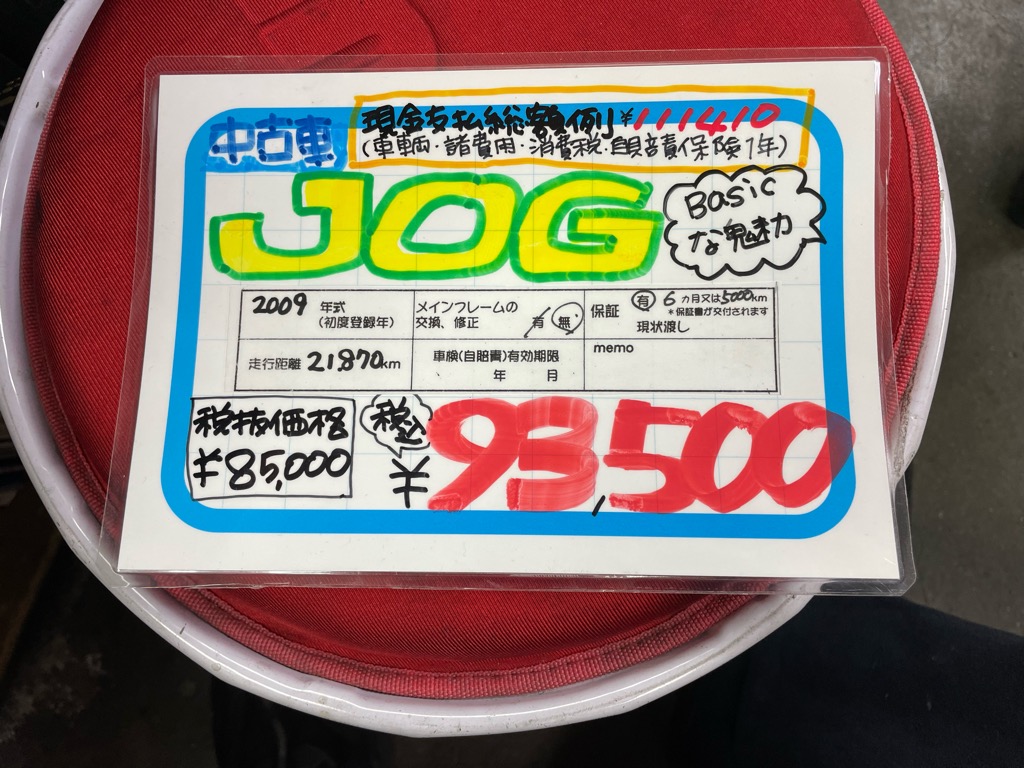 中古車
現金支払総額例 ¥111410
(車輌・諸費用・消費税・自賠責保険1年)
JOG
Basic
な魅力
2009 年式
(初度登録年)
メインフレームの
交換、修正 有 / 無
保証 有 6 カ月又は5000km
*保証書が交付されます
現状渡し
走行距離 21,870km
車検(自賠責)有効期限
年 月
memo
税抜価格
¥85,000
税込
¥93,500